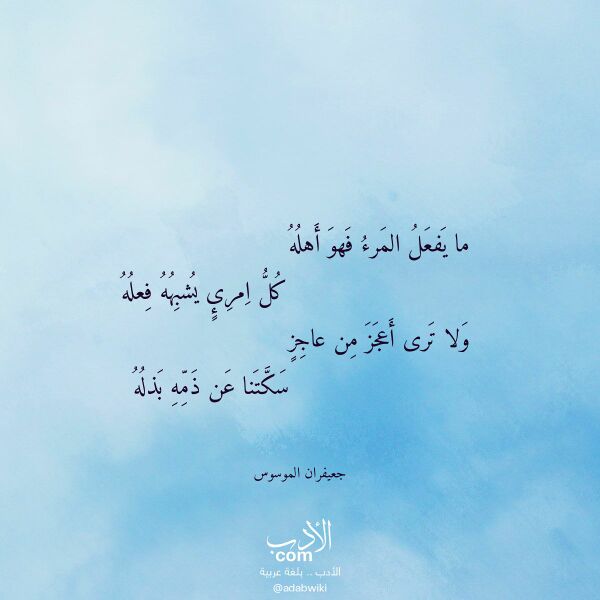 ما يَفعَلُ المَرءُ فَهوَ أَهلُهُ
كُلُّ اِمرِئٍ يُشبِهُهُ فِعلُهُ
وَلا تَرى أَعجَزَ مِن عاجِزٍ
سَكَّتَنا عَن ذَمِّهِ بَذلُهُ
جعيفران الموسوس
الأدب
com
الأدب .. بلغة عربية
@adabwiki